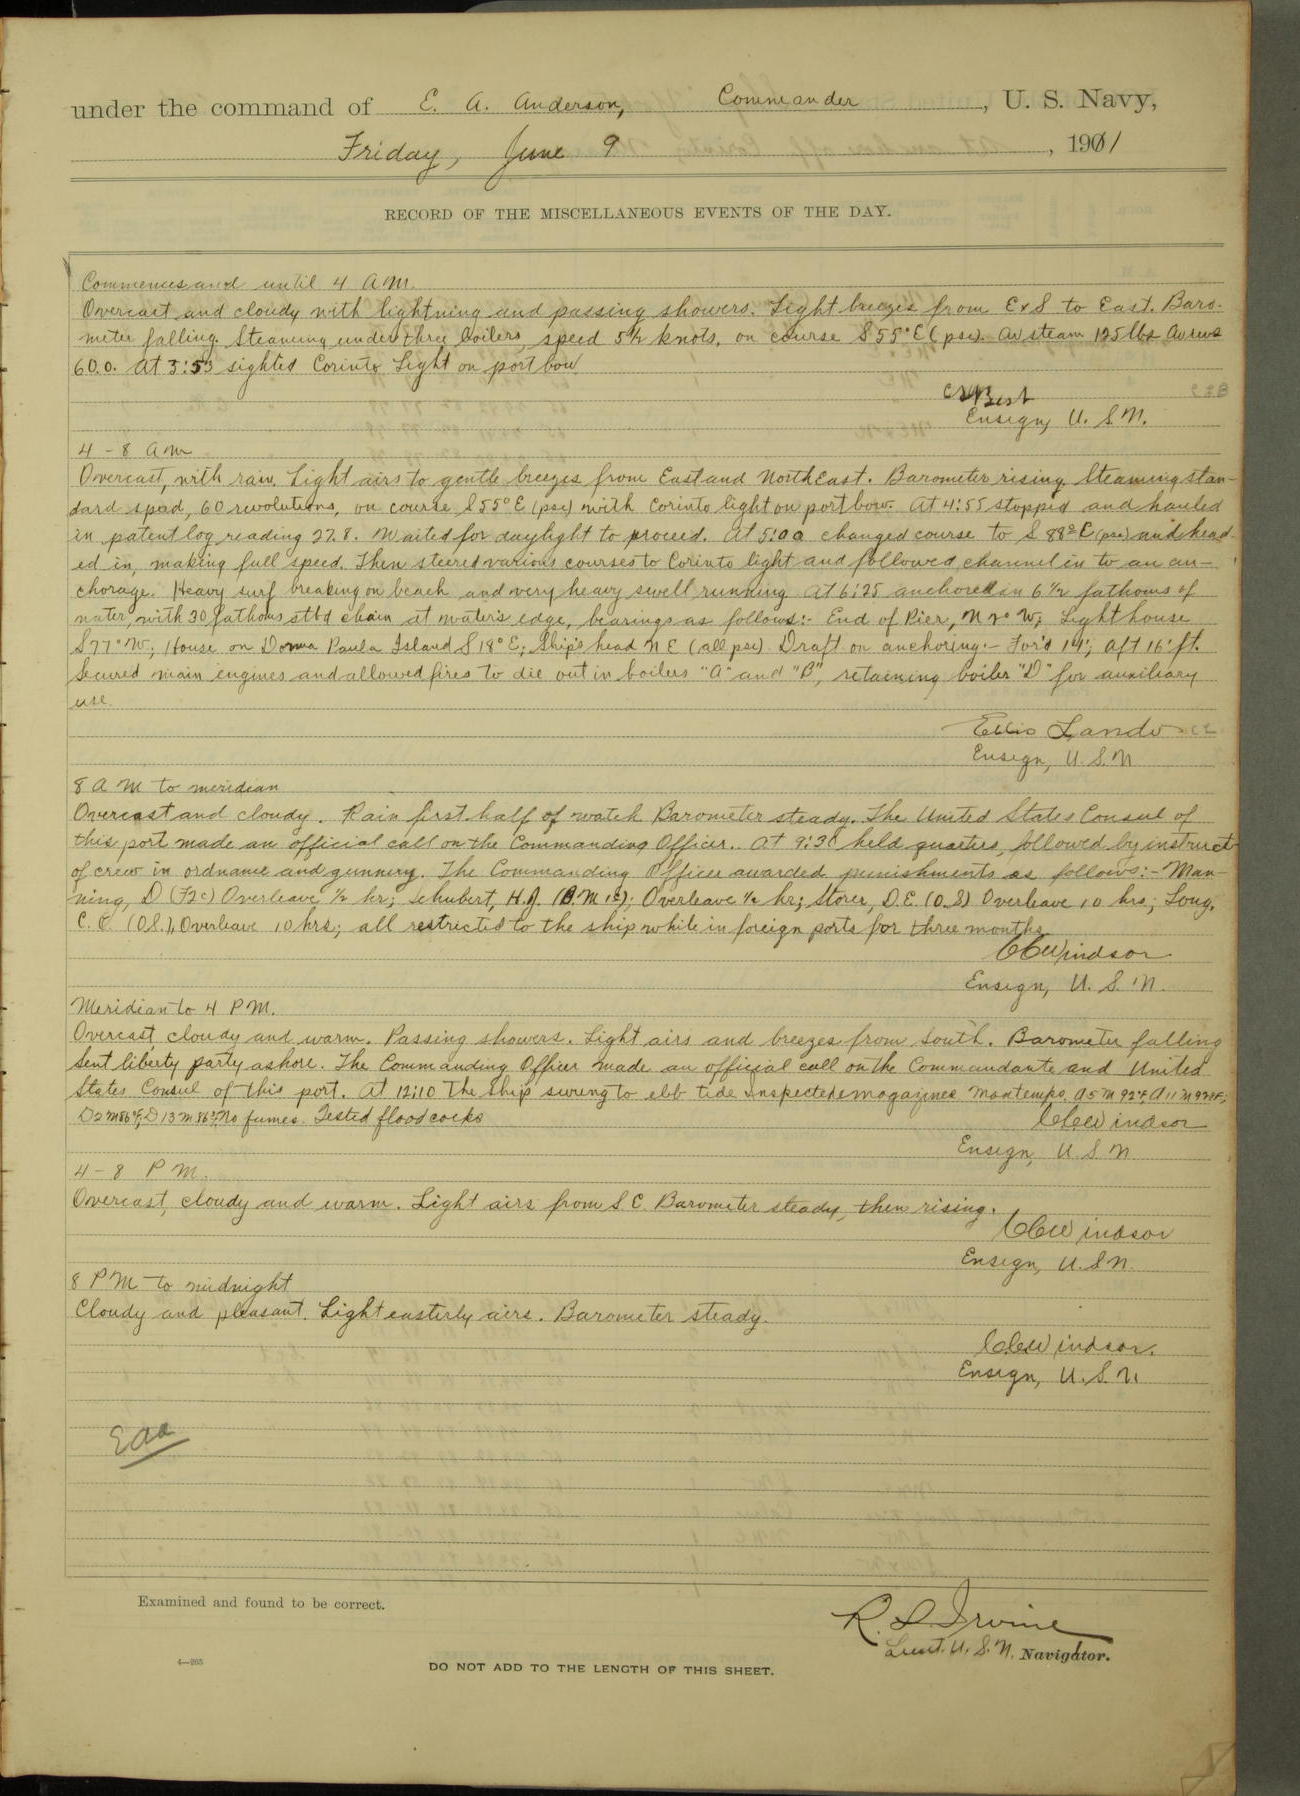 under the command of E. A. Anderson, Commander, U. S. Navy,
Friday, June 9, 1901
RECORD OF THE MISCELLANEOUS EVENTS OF THE DAY.
Commences and until 4 A.M.
Overcast and cloudy with lightning and passing showers. Light breezes from ExS to East. Baro-
meter falling. Steaming under three boilers, speed 5½ knots, on course S55°E (psc). Av steam 125 lbs Av revs
60.0. At 3:53 sighted Corinto Light on port bow
Ensign, U. S. N.
4 - 8 A M
Overcast, with rain. Light airs to gentle breezes from East and NorthEast. Barometer rising. Steaming stan-
dard speed, 60 revolutions, on course S55°E (psc) with Corinto light on port bow. At 4:55 stopped and hauled
in patent log reading 27.8. Waited for daylight to proceed. At 5:00 changed course to S 88° E (psc) and head-
ed in, making full speed. Then steered various courses to Corinto light and followed channel in to an an-
chorage. Heavy surf breaking on beach and very heavy swell running. At 6:25 anchored in 6 ½ fathoms of
water, with 30 fathoms stbd chain at water's edge, bearings as follows:- End of Pier, N 2° W; Light house
S77°W; House on Donna Paula Island S18°E; Ship's head NE (all psc). Draft on anchoring:- For'd 14'; aft 16' ft.
Secured main engines and allowed fires to die out in boilers "A" and "B", retaining boiler "D" for auxiliary
use.
Ellis Lando
Ensign, U. S. N
8 A M to meridian
Overcast and cloudy. Rain first half of watch Barometer steady. The United States Consul of
this port made an official call on the Commanding Officer. At 9:30 held quarters, followed by instruct
of crew in ordnance and gunnery. The Commanding Officer awarded punishments as follows:- Man-
ning, D (F2c) Overleave ½ hr; Schubert, H.J. (B.M 1c); Overleave ½ hr; Storer, D.E. (O.S) Overleave 10 hrs; Long,
C. E. (O.S.), Overleave 10 hrs; all restricted to the ship while in foreign ports for three months.
Windsor
Ensign, U. S. N.
Meridian to 4 P M.
Overcast cloudy and warm. Passing showers. Light airs and breezes from South. Barometer falling
Sent liberty party ashore. The Commanding Officer made an official call on the Commandante and United
States Consul of this port. At 12:10 The ship swung to ebb tide Inspected magazines Max temps. A5M 92°F, A11M
D2M86°F, D13M 86°F, No fumes. Tested flood cocks
Windsor
Ensign, U S N
4 - 8 P M.
Overcast, cloudy and warm. Light airs from S.E. Barometer steady, then rising.
Windsor
Ensign, U. S N.
8 P M to midnight
Cloudy and pleasant. Light easterly airs. Barometer steady.
Windsor.
Ensign, U. S. N
EAA
Examined and found to be correct.
R. S. Irvine
Lieut. U. S. N. Navigator.
4—265
DO NOT ADD TO THE LENGTH OF THIS SHEET.